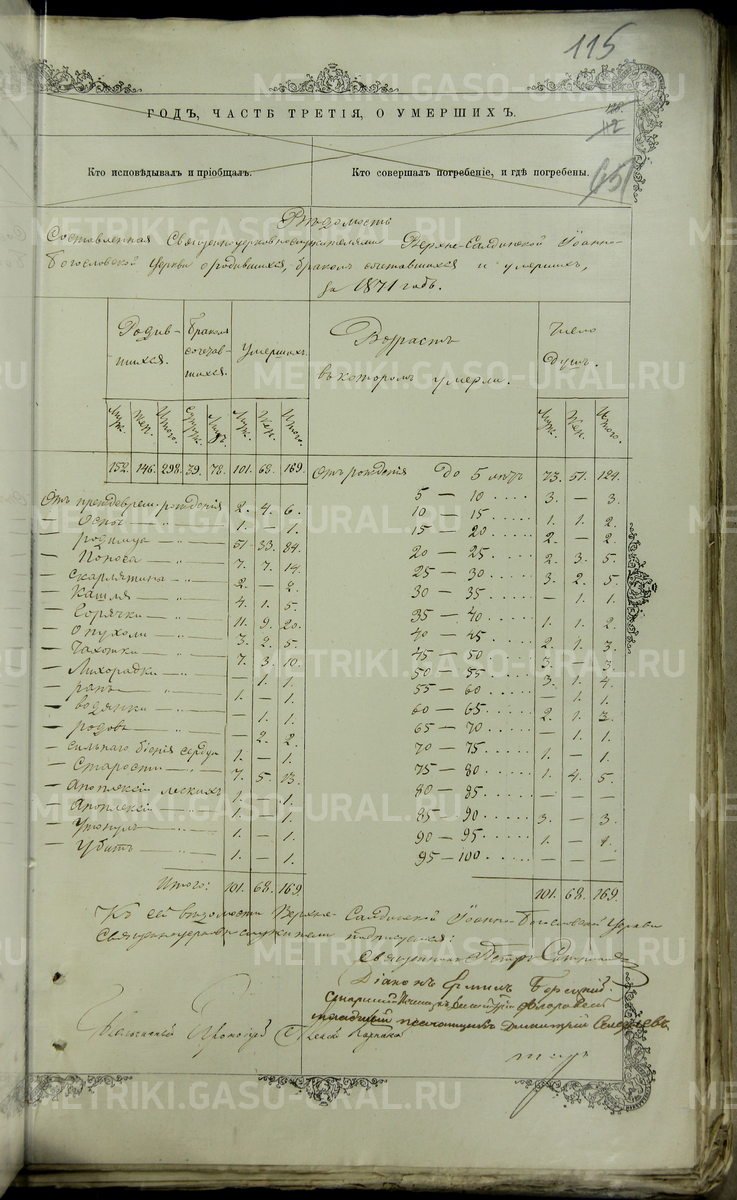 115
ГОДЪ, ЧАСТЬ ТРЕТІЯ, О УМЕРШИХЪ.
Кто исповѣдывалъ и пріобщалъ. Кто совершалъ погребеніе, и гдѣ погребены.
651
Вѣдомость
Составленная Священноцерковнослужителями Верхне-Салдинской Іоанно-
Богословской Церкви о родившихся, бракомъ сочетавшихся и умершихъ,
за 1871 годъ.
Родив-шихся. Бракомъ сочетав-шихся. Умершихъ. Возрастъ въ которомъ умерли. Число душъ.
Муж. Жен. Итого. Супруж. Лицъ. Муж. Жен. Итого. Муж. Жен. Итого.
152. 146. 298. 39. 78. 101. 68. 169. Отъ рожденія до 5 лѣтъ 73. 51. 124.
Отъ преждеврем. рожденія 2. 4. 6.
— Оспы — „ — 1. — 1.
— родимца — „ — 51 — 33. 84.
— Поноса — „ — 7. 7. 14.
— Скарлятины — „ — 2. — 2.
— Кашля — „ — 4. 1. 5.
— Горячки — „ — 11. 9. 20.
— Опухоли — „ — 3. 2. 5.
— Чахотки — „ — 7. 3. 10.
— Лихорадки — „ — — 1. 1.
— ранъ — „ — 1. — 1.
— водянки — „ — — 1. 1.
— родовъ — „ — — 2. 2.
— сильнаго біенія сердца 1. — 1.
— Старости — „ — 7. 5. 13.
— Апоплексіи легкихъ 1. — 1.
— Апоплексіи — „ — 1. — 1.
— Утонулъ — „ — 1. — 1.
— Убитъ — „ — 1. — 1.
5 — 10 3. — 3.
10 — 15 1. 1. 2.
15 — 20 2. — 2.
20 — 25 2. 3. 5.
25 — 30 3. 2. 5.
30 — 35 — 1. 1.
35 — 40 1. 1. 2.
40 — 45 2. 1. 3.
45 — 50 3. — 3.
50 — 55 3. 1. 4.
55 — 60 — 1. 1.
60 — 65 2. 1. 3.
65 — 70 — 1. 1.
70 — 75 1. — 1.
75 — 80 1. 4. 5.
80 — 85 — — —
85 — 90 3. — 3.
90 — 95 1. — 1.
95 — 100 — — —
Итого: 101. 68. 169 101. 68. 169.
Къ сей вѣдомости Верхне-Салдинской Іоанно-Богословской Церкви
Священноцерковнослужители подписуемся:
Священникъ Петръ
Діаконъ
младшій псаломщикъ Димитрій
METRIKI.GASO-URAL.RU